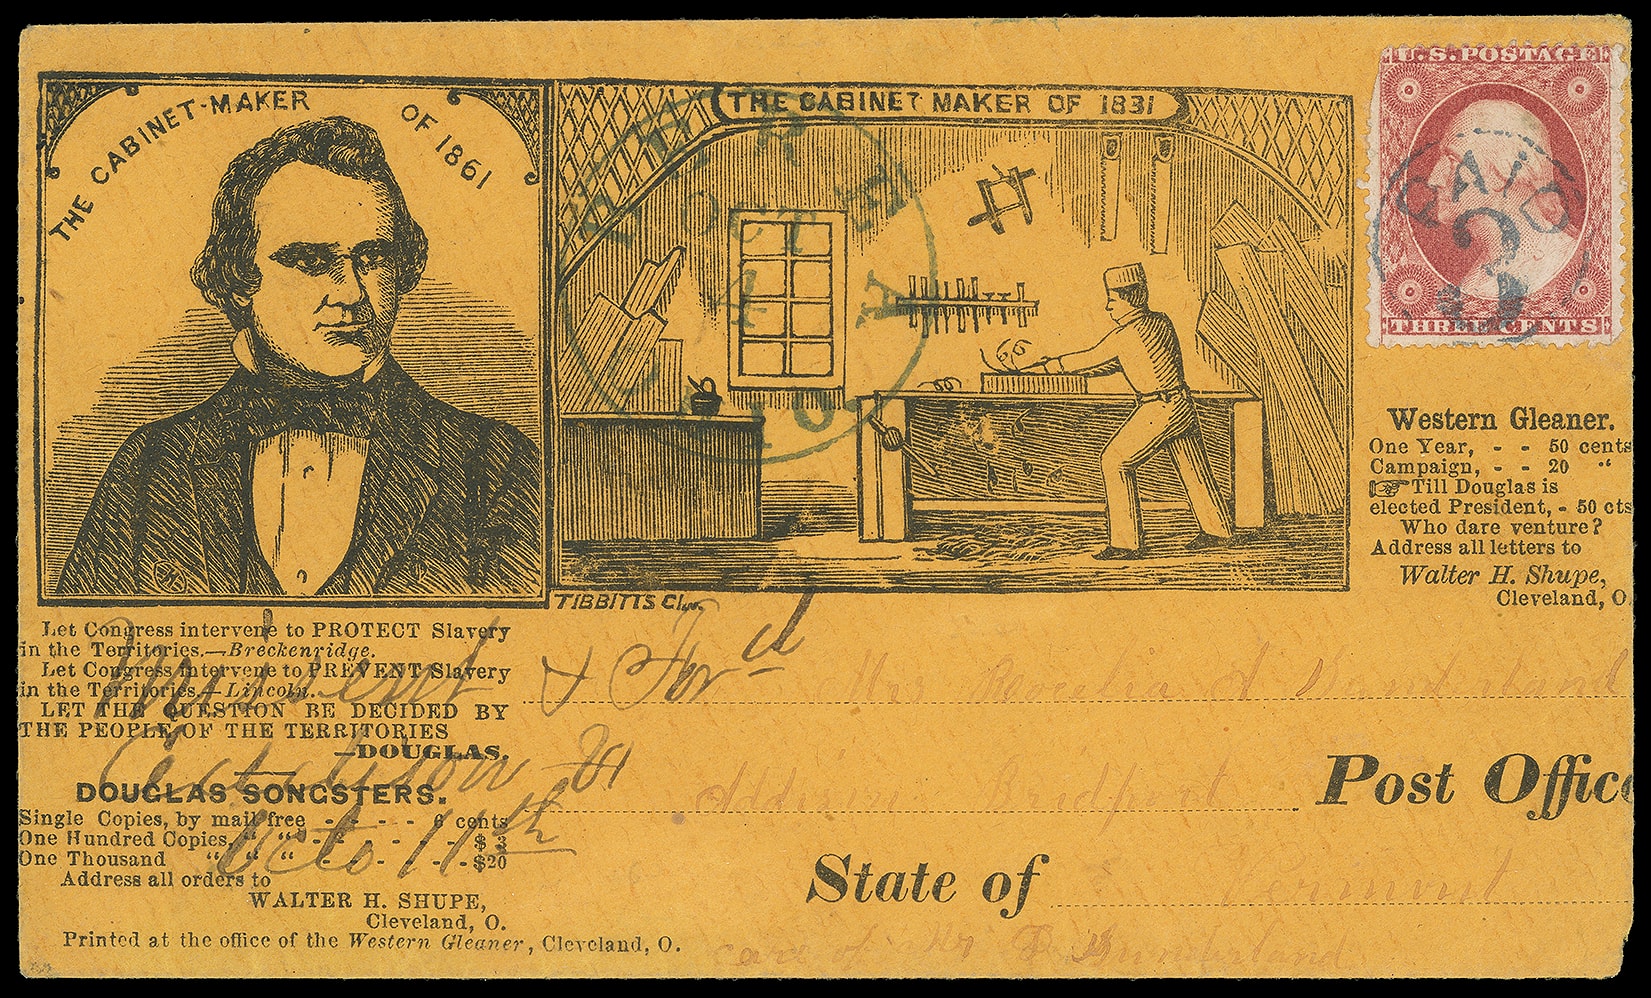 THE CABINET-MAKER OF 1861
THE CABINET MAKER OF 1831
U.S. POSTAGE
THREE CENTS
PAID
3
BEREA
OCT
4
OHIO
TIBBITTS
Western Gleaner.
One Year, - - 50 cents
Campaign, - - 20 "
☞ Till Douglas is
elected President, - 50 cts
Who dare venture?
Address all letters to
Walter H. Shupe,
Cleveland, O.
Let Congress intervene to PROTECT Slavery
in the Territories.—Breckenridge.
Let Congress intervene to PREVENT Slavery
in the Territories.—Lincoln.
LET THE QUESTION BE DECIDED BY
THE PEOPLE OF THE TERRITORIES
—DOUGLAS.
DOUGLAS SONGSTERS.
Single Copies, by mail free - - - - 6 cents
One Hundred Copies, " " - - - - $ 3
One Thousand " " " - - - - $20
Address all orders to
WALTER H. SHUPE,
Cleveland, O.
Printed at the office of the Western Gleaner, Cleveland, O.
Missent & For'd
Octo 11th
Addison Bridport
Post Office
State of Vermont
care of